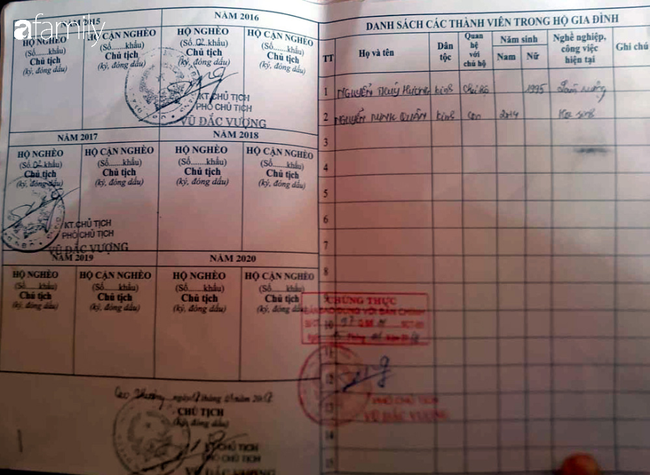 afamily
NĂM 2015
NĂM 2016
HỘ NGHÈO
(Số khẩu)
Chủ tịch
(ký, đóng dấu)
HỘ CẬN NGHÈO
(Số khẩu)
Chủ tịch
(ký, đóng dấu)
HỘ NGHÈO
(Số 02 khẩu)
Chủ tịch
(ký, đóng dấu)
HỘ CẬN NGHÈO
(Số khẩu)
Chủ tịch
(ký, đóng dấu)
KT.CHỦ TỊCH
PHÓ CHỦ TỊCH
VŨ ĐẮC VƯỢNG
NĂM 2017
NĂM 2018
HỘ NGHÈO
(Số 02 khẩu)
Chủ tịch
(ký, đóng dấu)
HỘ CẬN NGHÈO
(Số khẩu)
Chủ tịch
(ký, đóng dấu)
HỘ NGHÈO
(Số khẩu)
Chủ tịch
(ký, đóng dấu)
HỘ CẬN NGHÈO
(Số khẩu)
Chủ tịch
(ký, đóng dấu)
KT.CHỦ TỊCH
PHÓ CHỦ TỊCH
VŨ ĐẮC VƯỢNG
NĂM 2019
NĂM 2020
HỘ NGHÈO
(Số khẩu)
Chủ tịch
(ký, đóng dấu)
HỘ CẬN NGHÈO
(Số khẩu)
Chủ tịch
(ký, đóng dấu)
HỘ NGHÈO
(Số khẩu)
Chủ tịch
(ký, đóng dấu)
HỘ CẬN NGHÈO
(Số khẩu)
Chủ tịch
(ký, đóng dấu)
ngày tháng năm
CHỦ TỊCH
(ký, đóng dấu)
KT.CHỦ TỊCH
PHÓ CHỦ TỊCH
VŨ ĐẮC VƯỢNG
DANH SÁCH CÁC THÀNH VIÊN TRONG HỘ GIA ĐÌNH
TT
Họ và tên
Dân tộc
Quan hệ với chủ hộ
Năm sinh
Nam
Nữ
Nghề nghiệp, công việc hiện tại
Ghi chú
1 NGUYỄN THUỲ Hương kinh Chủ hộ 1995
2 NGUYỄN MINH QUÂN kinh con 2014
3
4
5
6
7
8
9
10
CHỨNG THỰC
BẢN SAO ĐÚNG VỚI BẢN CHÍNH
12
13
PHÓ CHỦ TỊCH
VŨ ĐẮC VƯỢNG
15